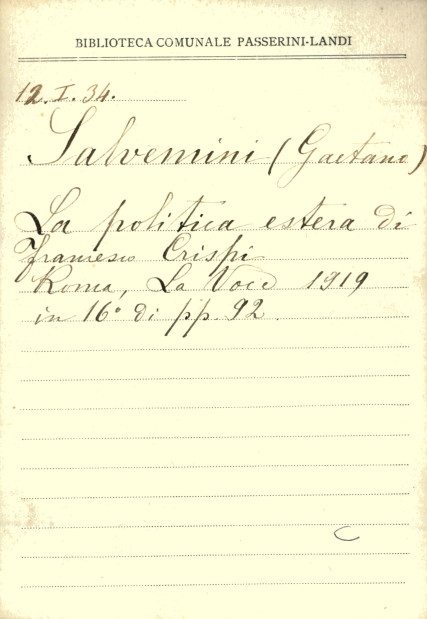 BIBLIOTECA COMUNALE PASSERINI-LANDI
12.I.34.
Salvemini (Gaetano)
La politica estera di
Francesco Crispi
Roma, La Voce 1919
in 16° di pp. 92.